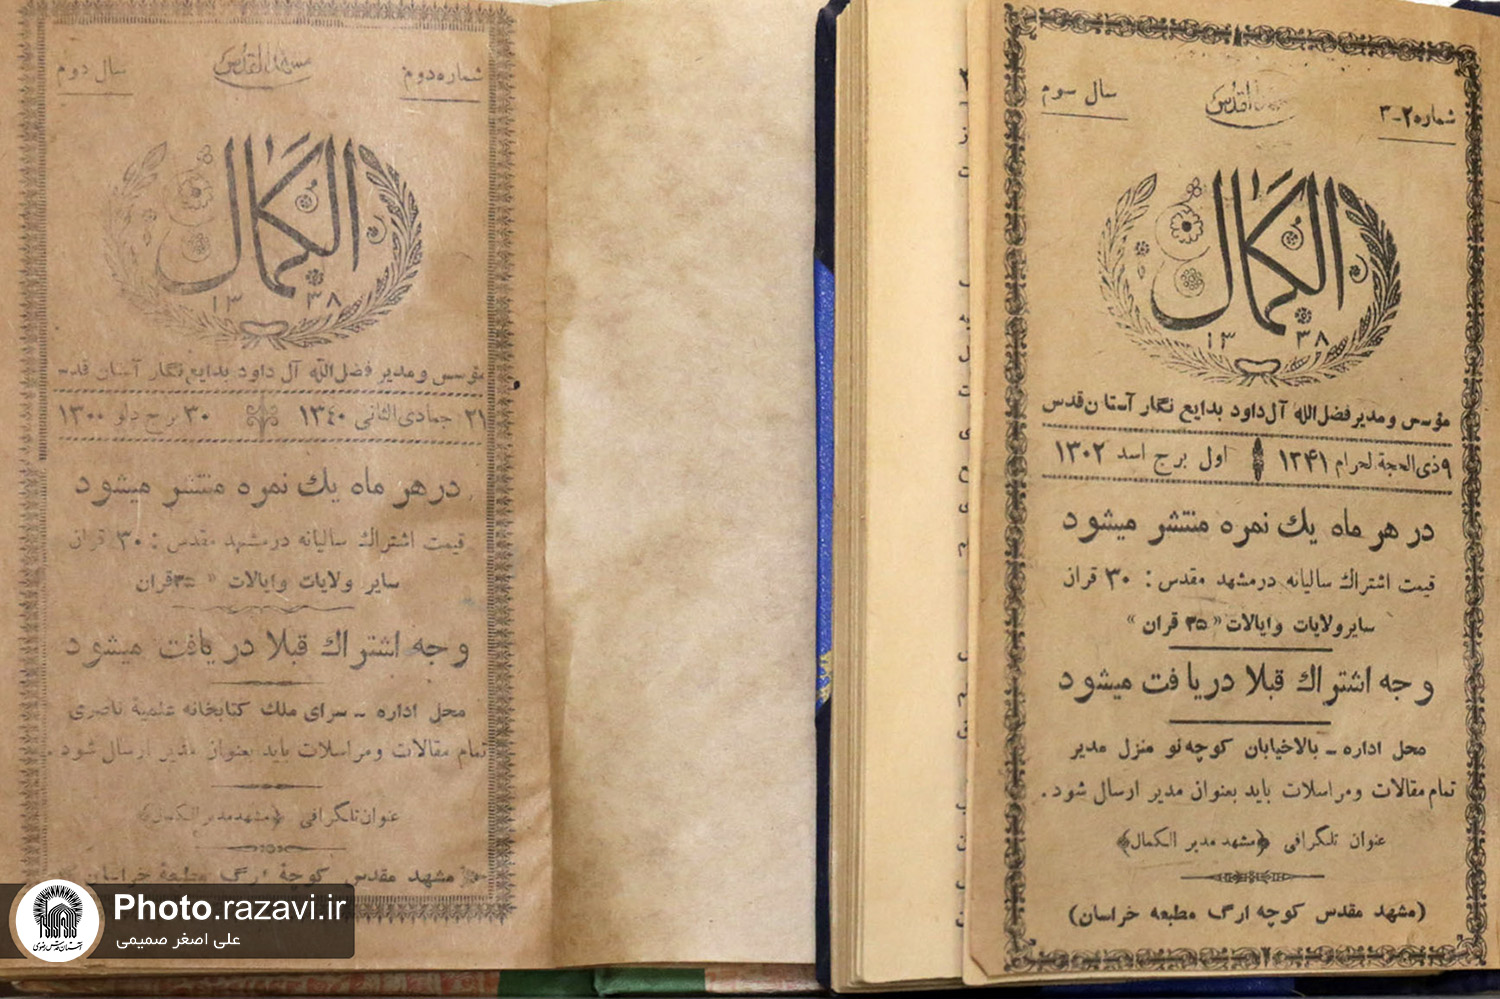 شماره ۲-۳
سال سوم
الكمال
۱۳۳۸
مؤسس و مدیر فضل‌الله آل داود بدایع نگار آستان قدس
۹ ذی‌الحجة لحرام ۱۳۴۱ اول برج اسد ۱۳۰۲
در هر ماه یك نمره منتشر میشود
قیمت اشتراك سالیانه در مشهد مقدس : ۳۰ قران
سایر ولایات و ایالات « ۳۵ قران »
وجه اشتراك قبلا دریافت میشود
محل اداره ـ بالاخیابان كوچه نو منزل مدیر
تمام مقالات و مراسلات باید بعنوان مدیر ارسال شود.
عنوان تلگرافی ﴿مشهد مدیر الكمال﴾
(مشهد مقدس كوچه ارگ مطبعه خراسان)
شماره دوم
سال دوم
الكمال
۱۳۳۸
مؤسس و مدیر فضل‌الله آل داود بدایع نگار آستان قدس
۲۱ جمادی‌الثانی ۱۳۴۰ ۳۰ برج دلو ۱۳۰۰
در هر ماه یك نمره منتشر میشود
قیمت اشتراك سالیانه در مشهد مقدس : ۳۰ قران
سایر ولایات و ایالات « ۳۵ قران
وجه اشتراك قبلا دریافت میشود
محل اداره ـ سرای ملك كتابخانه علمیهٔ ناصری
تمام مقالات و مراسلات باید بعنوان مدیر ارسال شود.
عنوان تلگرافی ﴿مشهد مدیر الكمال﴾
مشهد مقدس كوچهٔ ارگ مطبعهٔ خراسان
Photo.razavi.ir
علی اصغر صمیمی
آستان قدس رضوی